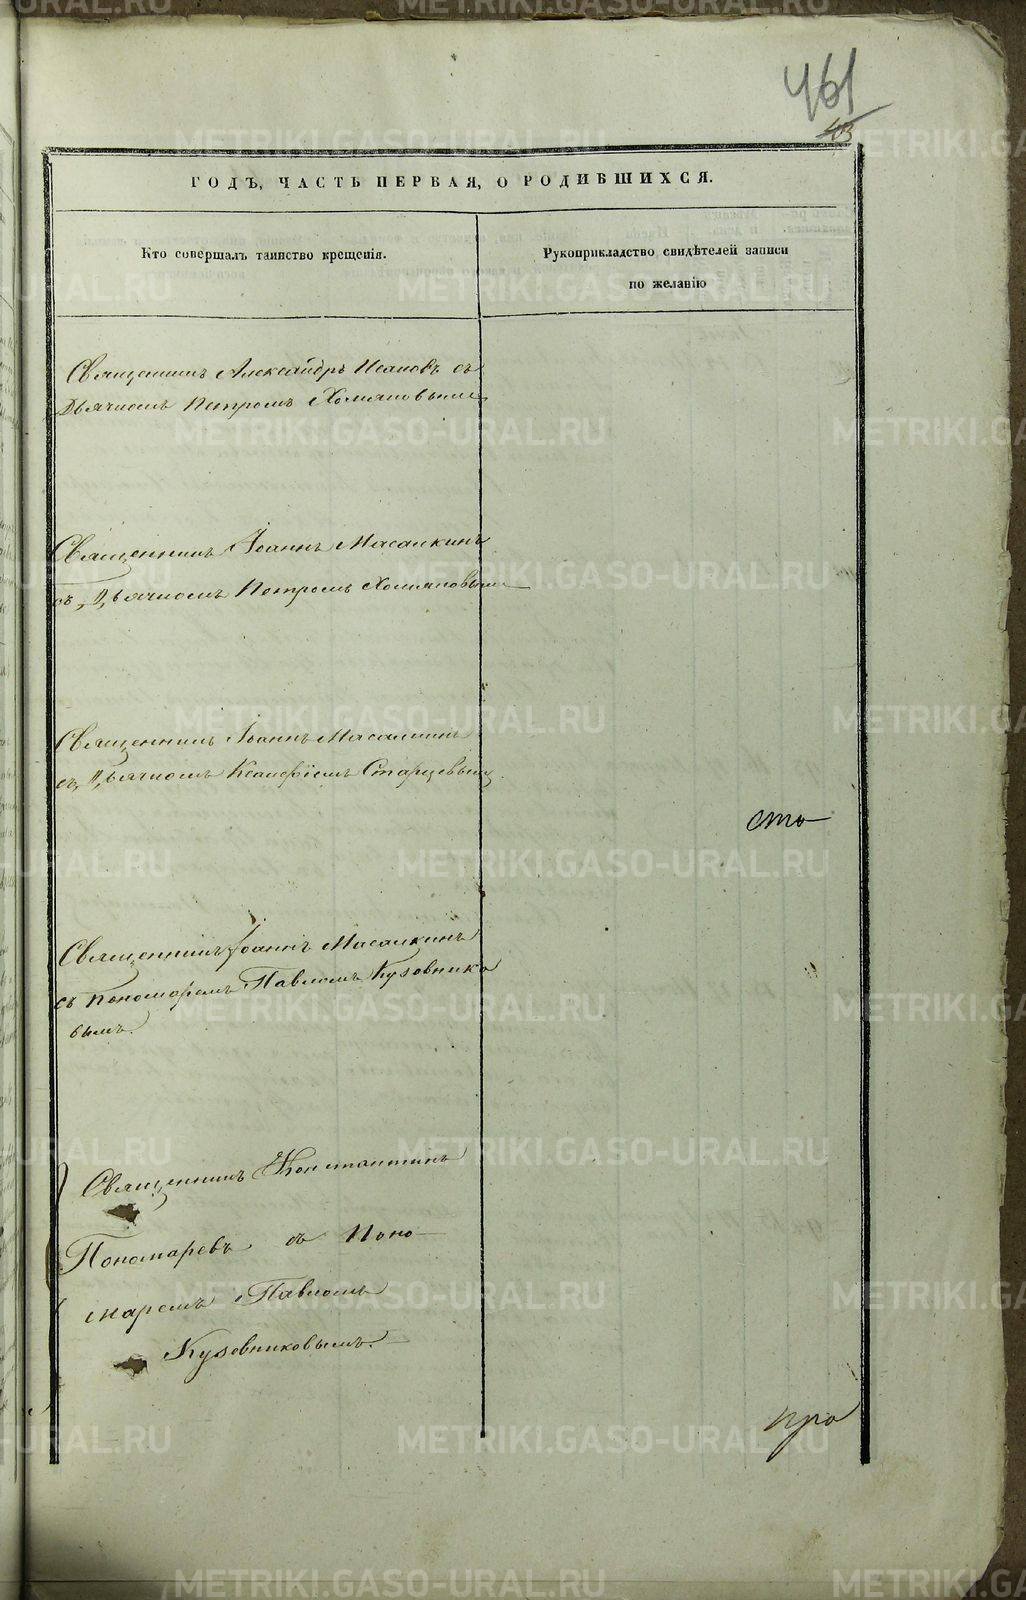 461
403
ГОДЪ, ЧАСТЬ ПЕРВАЯ, О РОДИВШИХСЯ.
Кто совершалъ таинство крещенія.
Рукоприкладство свидѣтелей записи
по желанію
Священникъ Александръ Исаковъ съ
Дьячкомъ Петромъ Хомяковымъ
Священникъ Іоаннъ Масалкинъ
съ Дьячкомъ Петромъ Хомяковымъ
Священникъ Іоаннъ Масалкинъ
съ Дьячкомъ Ксанфіемъ Старцевымъ
сто
Священникъ Іоаннъ Масалкинъ
съ Пономаремъ Павломъ Кузовнико
вымъ.
Священникъ Константинъ
Пономаревъ съ Поно
маремъ Павломъ
Кузовниковымъ.
про
METRIKI.GASO-URAL.RU